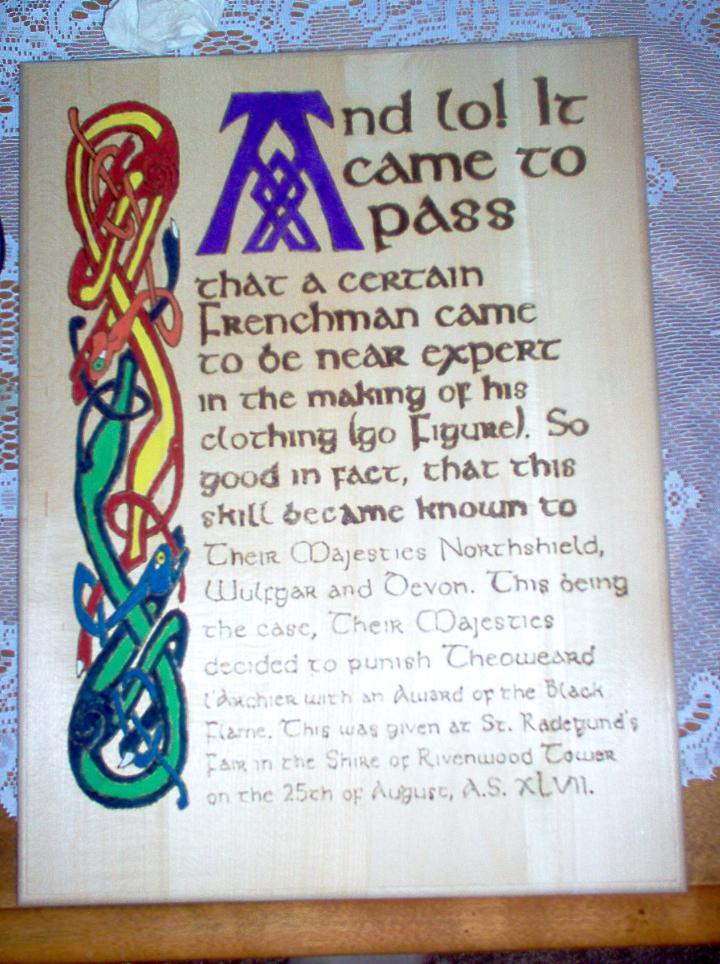 And lo! It
came to
pass
that a certain
Frenchman came
to be near expert
in the making of his
clothing (go Figure). So
good in fact, that this
skill became known to
Their Majesties Northshield,
Wulfgar and Devon. This being
the case, Their Majesties
decided to punish Theoweard
l'Archier with an Award of the Black
Flame. This was given at St. Radegund's
Fair in the Shire of Rivenwood Tower
on the 25th of August, A.S. XLVII.